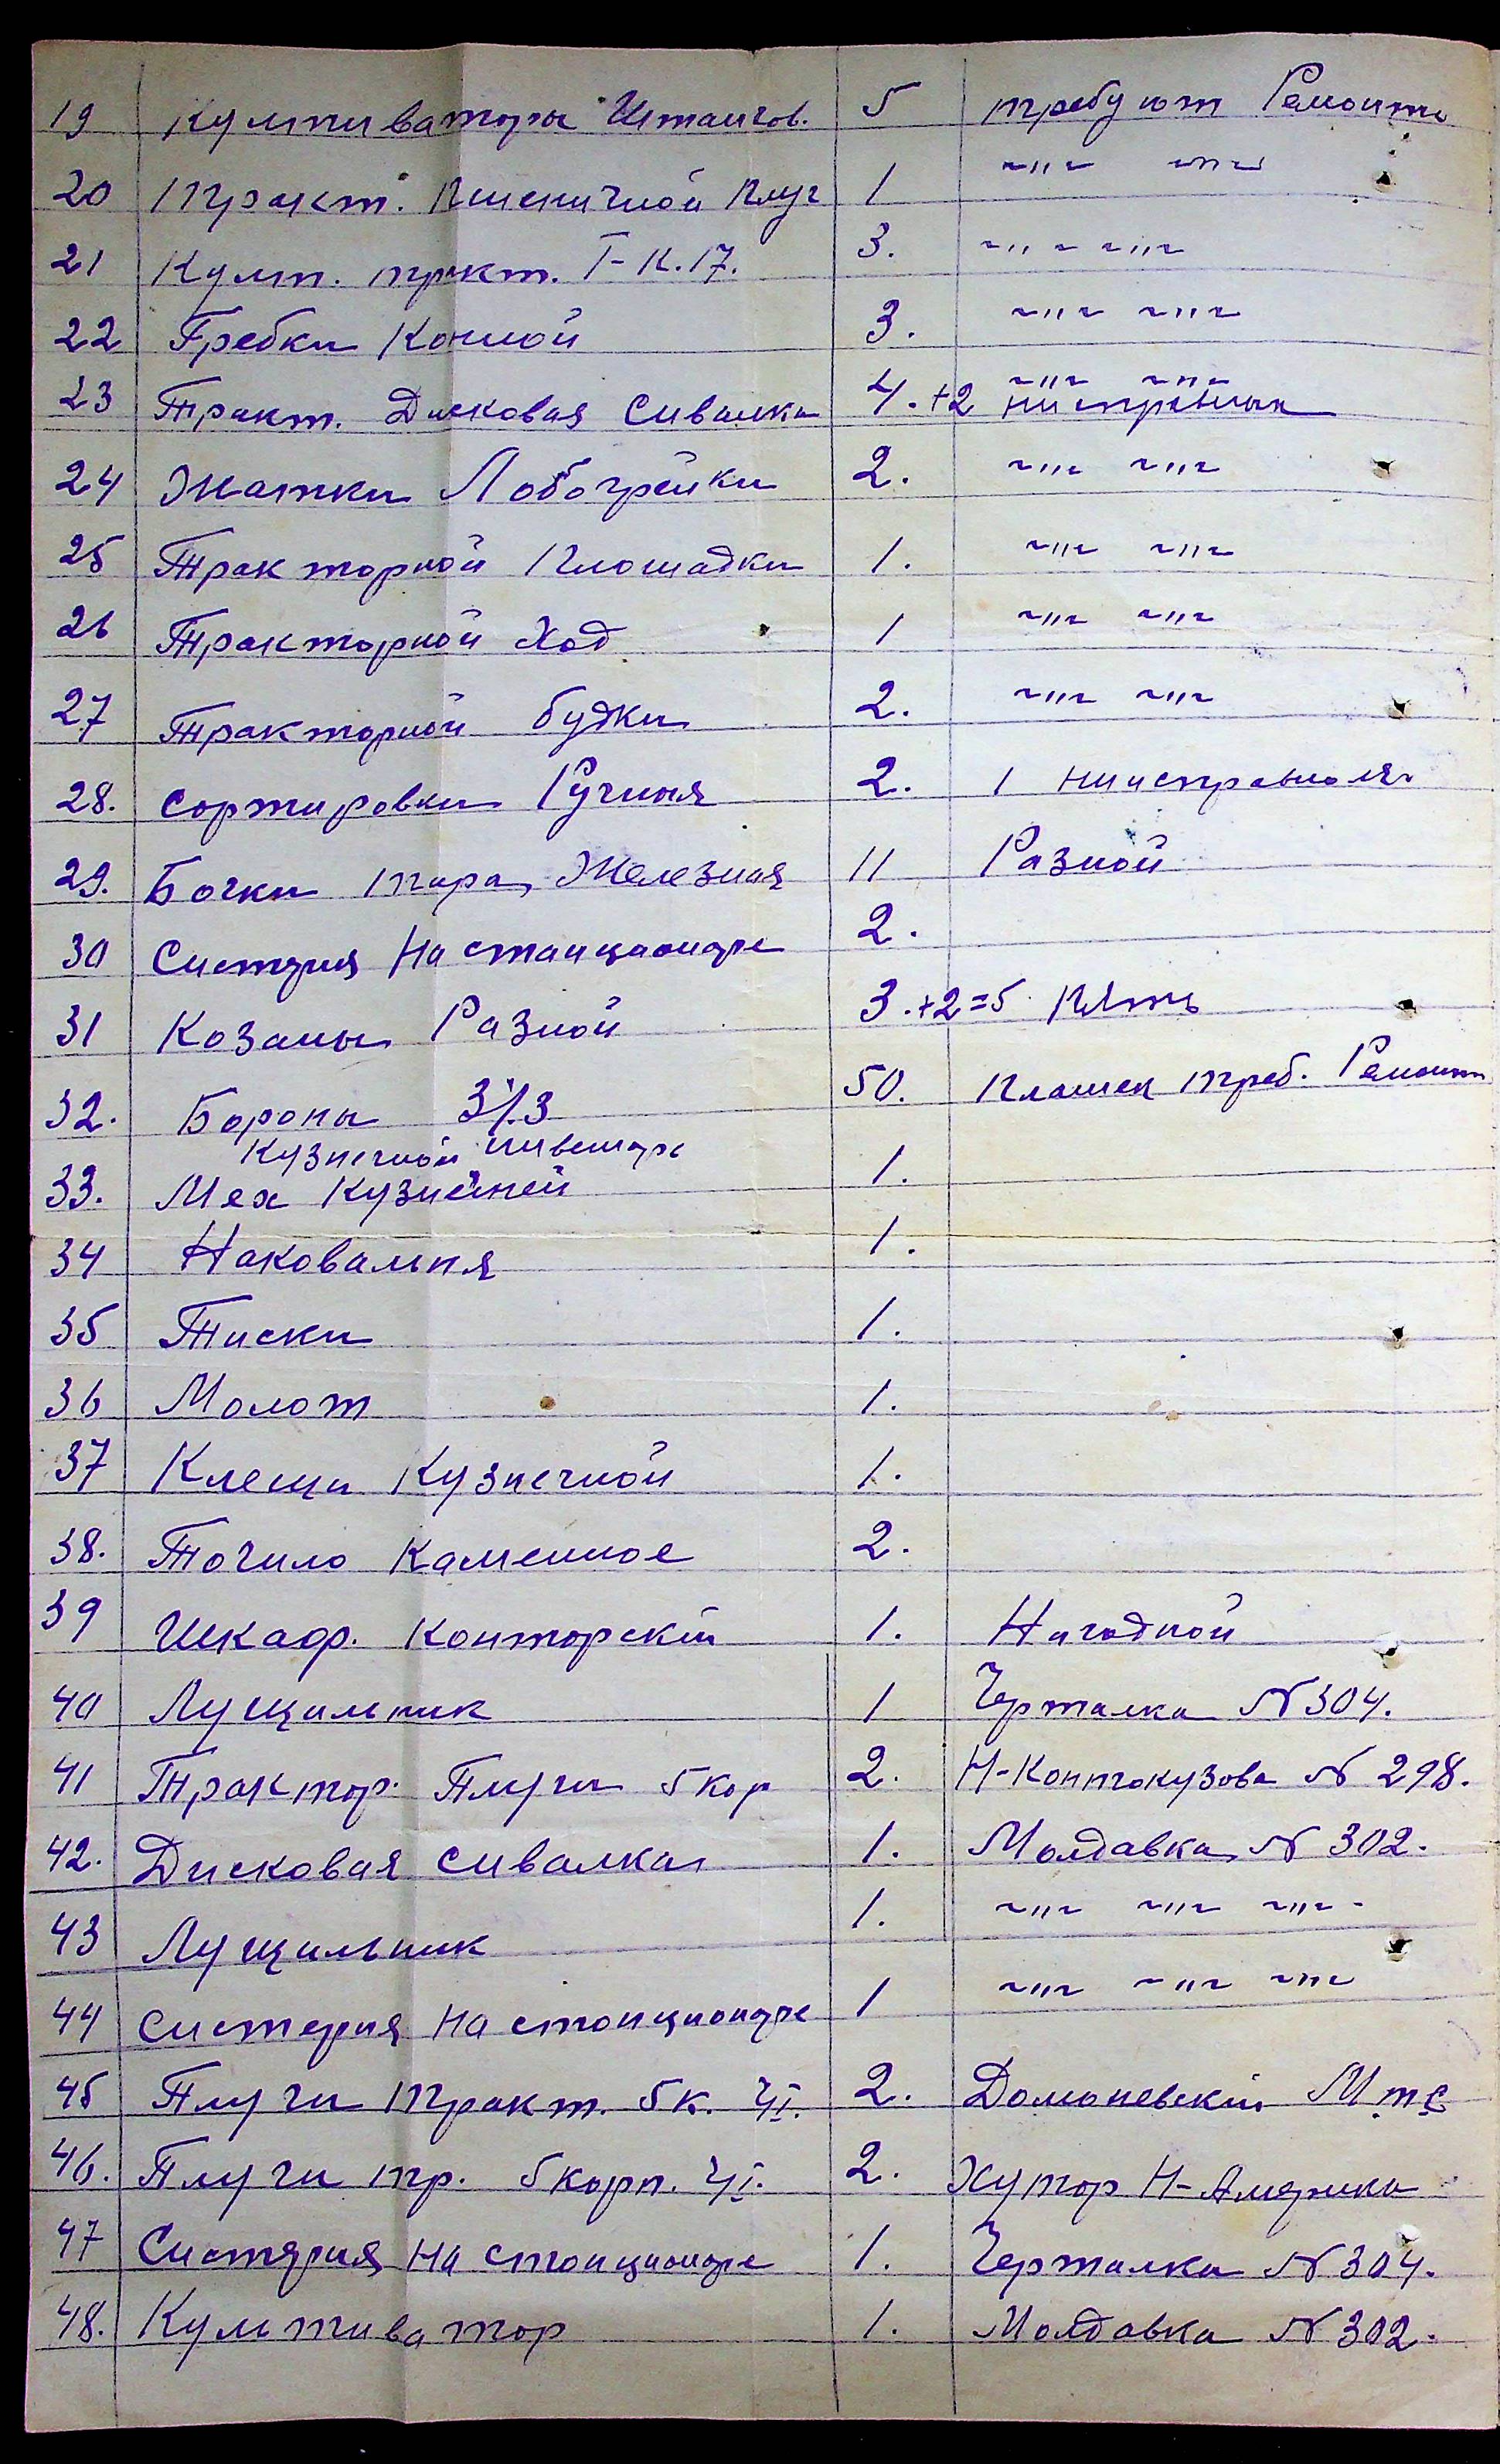 19 Култиваторы Штангов. 5 требуют Ремонта
20 Тракт. Пшеничной Плуг 1 -"- -"-
21 Культ. тракт. Т-К.17. 3. -"- -"-
22 Гребки Конной 3. -"- -"-
23 Тракт. Дисковая Сивалка 4.+2 -"- -"-
ниисправныи
24 Жатки Лобогрейки 2. -"- -"-
25 Тракторной Площадки 1. -"- -"-
26 Тракторной Ход 1 -"- -"-
27 Тракторной будки 2. -"- -"-
28. Сортировки Ручная 2. 1 ниисправная.
29. Бочки тара Железная 11 Разной
30 Систерня На станционаре 2.
31 Козаны Разной 3.+2=5. Пять
32. Бороны ЗИЗ 50. Клашек треб. Ремонт
Кузнечной инвентарь
33. Мех Кузнечней 1.
34 Наковальня 1.
35 Тиски 1.
36 Молот 1.
37 Клещи Кузнечной 1.
38. Точило Каменное 2.
39 Шкаф. Конторскій 1. Нигодной
40 Лущильник 1 Черталка N 304.
41 Трактор. Плуги 5 кор 2. Н-Контокузова N 298.
42. Дисковая сивалка 1. Молдавка N 302.
43 Лущильник 1. -"- -"- -"-
44 Систерня На стонционаре 1 -"- -"- -"-
45 Плуги Тракт. 5 к. ЧІ. 2. Доманевскій М.т.с
46. Плуги тр. 5 корп. ЧІ. 2. Хутор Н-Америка
47 Систерня На стонционаре 1. Черталка N 304.
48. Культиватор 1. Молдавка N 302.